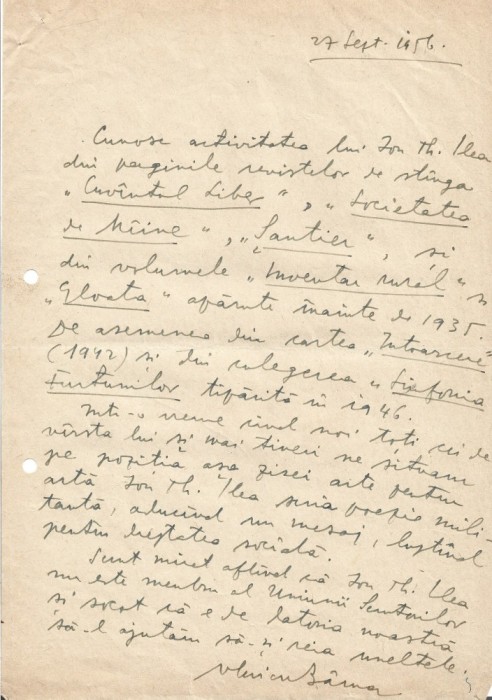 27 Sept. 1956.
Cunosc activitatea lui Ion Th. Ilea
din paginile revistelor de stînga
„Cuvîntul Liber", „Societatea
de Mîine", „Șantier", și
din volumele „Inventar rural" și
„Gloata" apărute înainte de 1935.
De asemenea din cartea „Întoarcere"
(1942) și din culegerea „Simfonia
Furtunilor" tipărită în 1946.
Într-o vreme cînd noi toți cei de
vîrsta lui și mai tineri ne situam
pe poziția așa zisei arte pentru
artă Ion Th. Ilea scria poezie mili-
tantă, aducînd un mesaj, luptînd
pentru dreptatea socială.
Sunt mirat aflînd că Ion Th. Ilea
nu este membru al Uniunii Scriitorilor
și socot că e de datoria noastră
să-l ajutăm să-și reia uneltele.